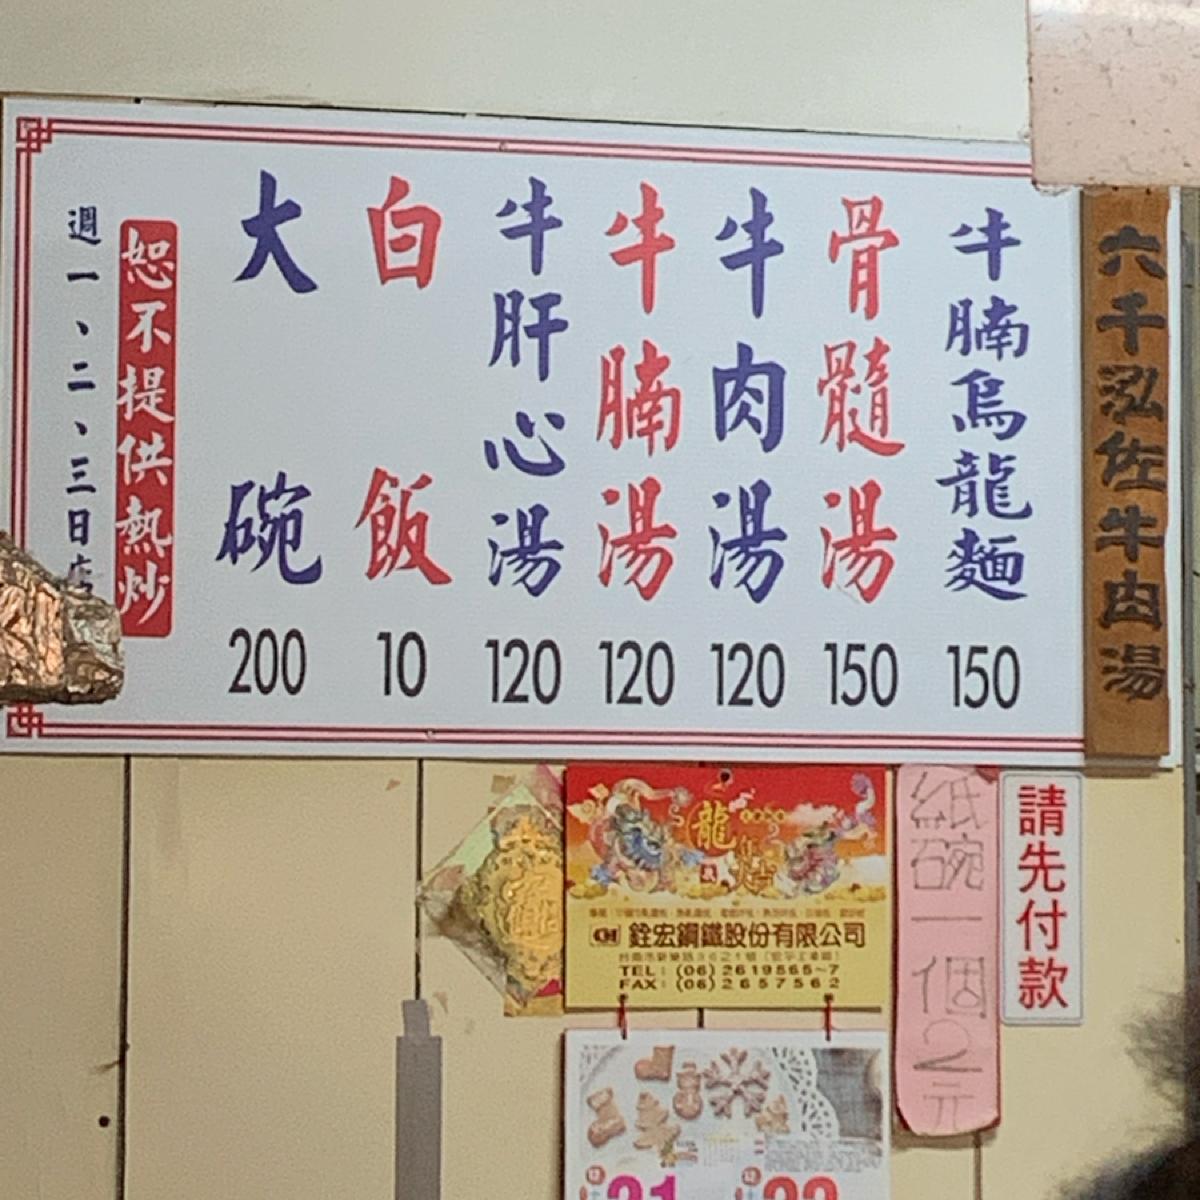 六千泓佐牛肉湯
牛腩烏龍麵 150
骨髓湯 150
牛肉湯 120
牛腩湯 120
牛肝心湯 120
白飯 10
大碗 200
恕不提供熱炒
週一、二、三日店
請先付款
紙碗一個2元
龍
銓宏鋼鐵股份有限公司
TEL：(06)2619565~7
FAX：(06)2657562
21
22